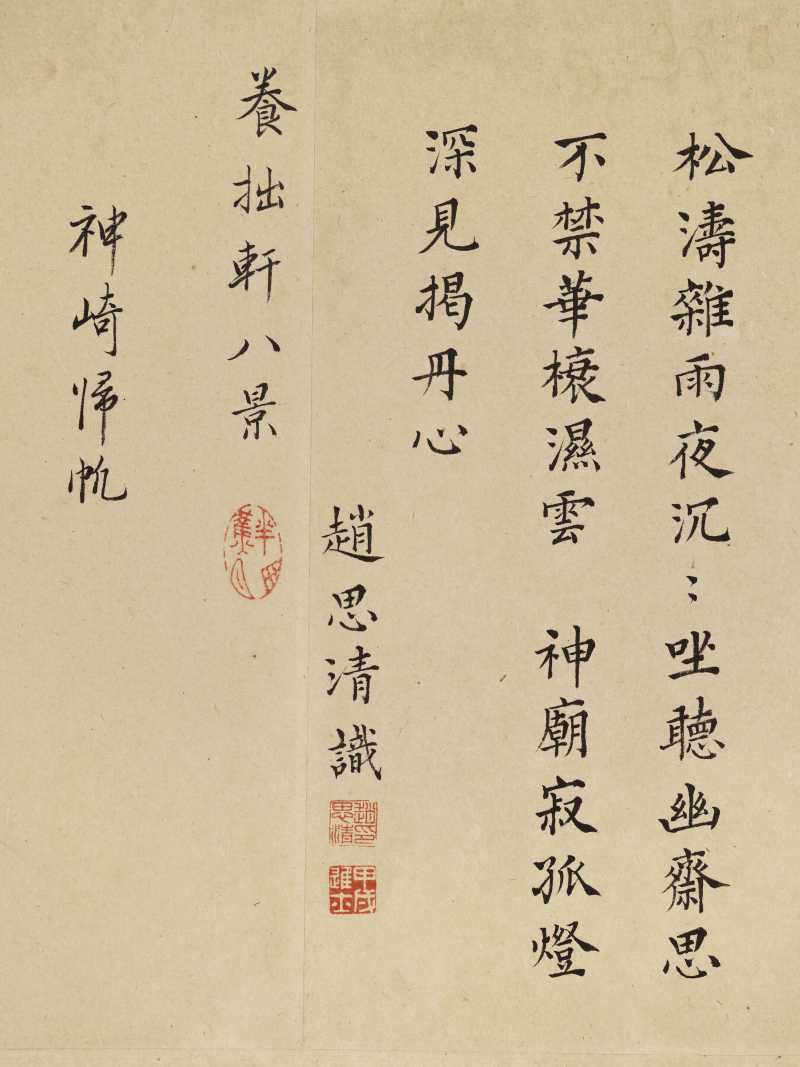 松濤雜雨夜沉〻坐聽幽齋思
不禁華榱濕雲 神廟寂孤燈
深見揭丹心
趙思清識
趙思清印
甲戌進士
養拙軒八景
神崎帰帆